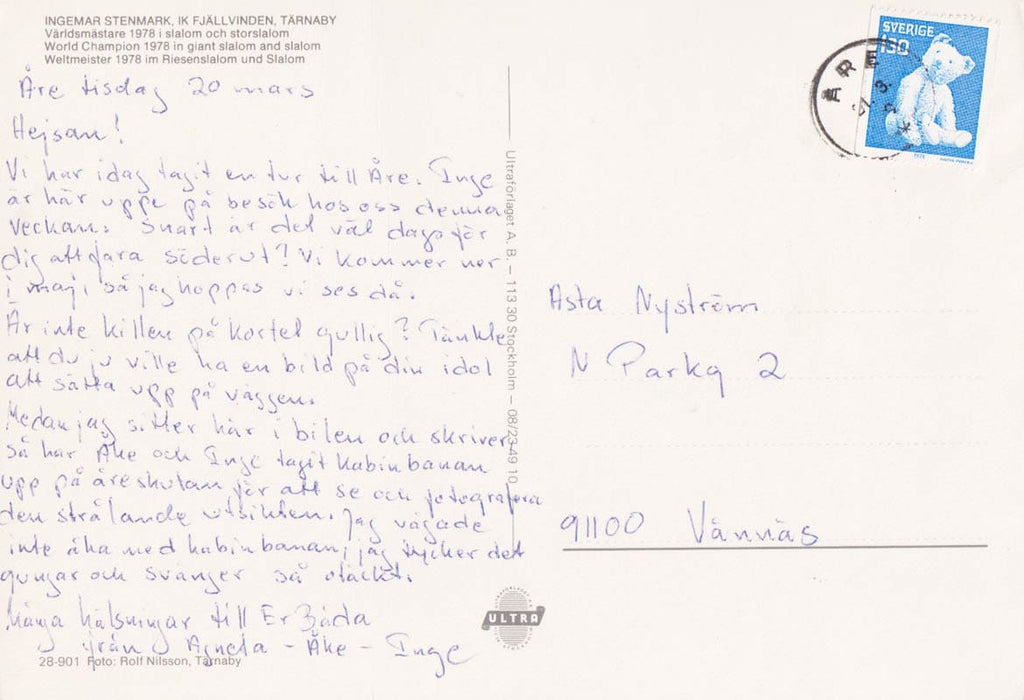 INGEMAR STENMARK, IK FJÄLLVINDEN, TÄRNABY
Världsmästare 1978 i slalom och storslalom
World Champion 1978 in giant slalom and slalom
Weltmeister 1978 im Riesenslalom und Slalom
Åre tisdag 20 mars
Hejsan!
Vi har idag tagit en tur till Åre. Inge
är här uppe på besök hos oss denna
veckan. Snart är det väl dags för
dig att fara söderut? Vi kommer ner
i maj, så jag hoppas vi ses då.
Är inte killen på kortet gullig? Tänkte
att du ju ville ha en bild på din idol
att sätta upp på väggen.
Medan jag sitter här i bilen och skriver
så har Åke och Inge tagit kabinbanan
upp på åreskutan för att se och fotografera
den strålande utsikten. Jag vågade
inte åka med kabinbanan, jag tycker det
gungar och svänger så otäckt.
Många hälsningar till Er Båda
från Agneta - Åke - Inge
28-901 Foto: Rolf Nilsson, Tärnaby
Ultraförlaget A. B. – 113 30 Stockholm – 08/23 49 10
ULTRA
SVERIGE
130
ÅRE
Asta Nyström
N Parkg 2
91100 Vännäs